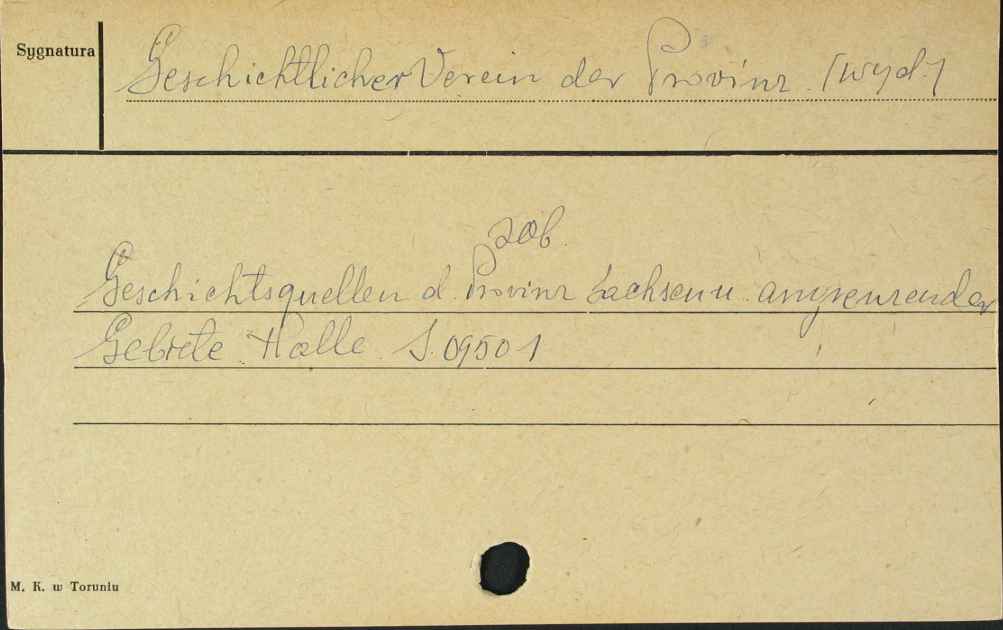 Sygnatura
Geschichtlicher Verein der Provinz [wyd.]
zob.
Geschichtsquellen d. Provinz Sachsen u. angrenzender
Gebiete Halle S. 09501
M. K. w Toruniu